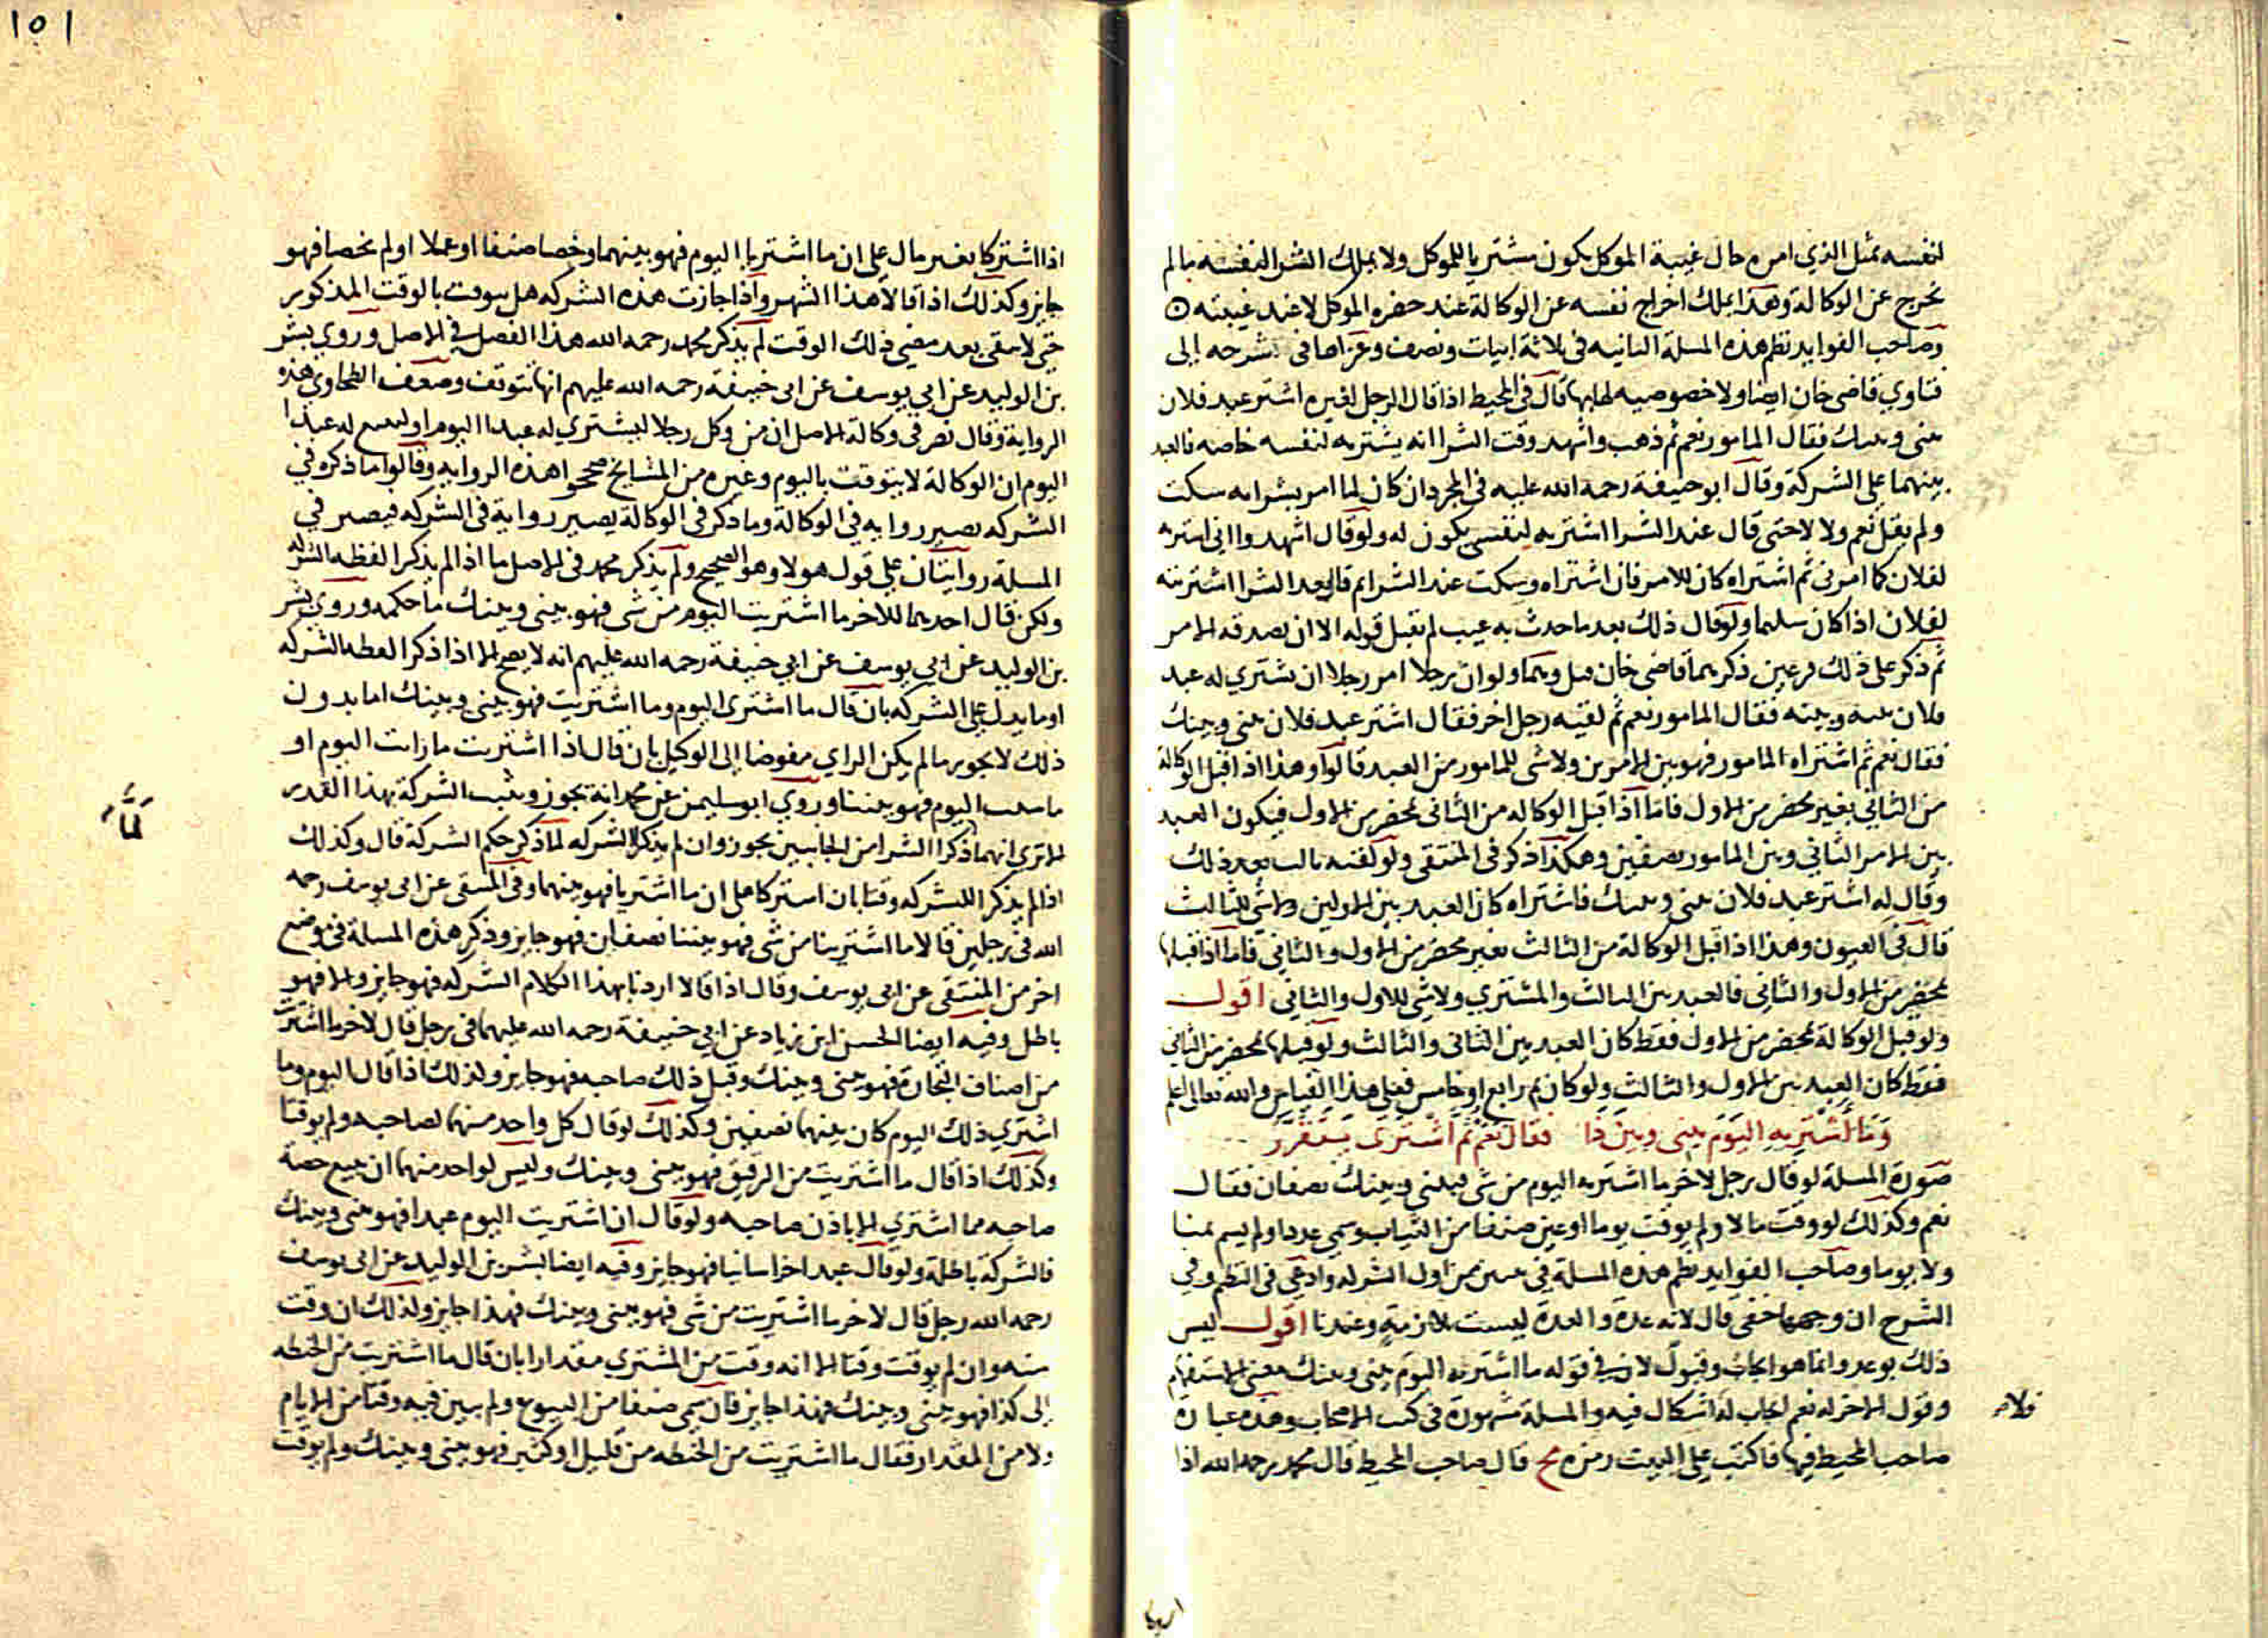 لنفسه بمثل الذي امره حال غيبة الموكل يكون مشتريا للموكل ولا يملك الشرا لنفسه ما لم
يخرج عن الوكالة وهذا يملك اخراج نفسه عن الوكالة عند حضره الموكل لا عند غيبته
وصاحب الفوايد نظم هذه المسلة الثانيه في ثلاثة ابيات ونصف وعزاها في شرحه الى
فتاوي قاضي خان ايضا ولا خصوصيه لها بها قال في المحيط اذا قال الرجل لغيره اشتر عبد فلان
بيني وبينك فقال المامور نعم ثم ذهب واشهد وقت الشرا انه يشتريه لنفسه خاصه فالعبد
بينهما على الشركة وقال ابو حنيفة رحمه الله عليه في المجرد ان كان لما امر بشرايه سكت
ولم يقل نعم ولا لا حتى قال عند الشرا اشتريه لنفسي يكون له ولو قال اشهدوا اني اشتريه
لفلان كما امرني ثم اشتراه كان للامر فان اشتراه وسكت عند الشرا ثم قال بعد الشرا اشتريته
لفلان اذا كان سليما ولو قال ذلك بعد ما حدث به عيب لم تقبل قوله الا ان يصدقه الامر
ثم ذكر على ذلك فرعين ذكرهما قاضي خان وهما ولو ان رجلا امر رجلا ان يشتري له عبد
فلان بينه وبينه فقال المامور نعم ثم لقيه رجل اخر فقال اشتر عبد فلان بيني وبينك
فقال نعم ثم اشتراه المامور فهو بين الامرين ولا شي للمامور من العبد قالوا وهذا اذا قبل الوكالة
من الثاني بغير محضر من الاول فاما اذا قبل الوكاله من الثاني بمحضر من الاول فيكون العبد
بين الامر الثاني وبين المامور نصفين وهكذا ذكر في المنتقى ولو لقيه ثالث بعد ذلك
وقال له اشتر عبد فلان بيني وبينك فاشتراه كان العبد بين الاولين ولا شي للثالث
قال في العيون وهذا اذا قبل الوكالة من الثالث بغير محضر من الاول والثاني فاما اذا قبلها
بمحضر من الاول والثاني فالعبد بين الثالث والمشتري ولا شي للاول والثاني اقول
ولو قبل الوكالة بمحضر من الاول فقط كان العبد بين الثاني والثالث ولو قبلها بمحضر من الثاني
فقط كان العبد بين الاول والثالث ولو كان ثم رابع او خامس فعلى هذا القياس والله تعالى اعلم
وما اشتريه اليوم بيني وبين ذا فقال نعم ثم اشترى يتقرر
صورة المسلة لو قال رجل لاخر ما اشتريه اليوم من شي فبيني وبينك نصفان فقال
نعم وكذلك لو وقت مالا ولم يوقت يوما او عين صنفا من الثياب وسمي عددا ولم يسم ثمنا
ولا يوما وصاحب الفوايد نظم هذه المسلة في بيتين من اول الشركه وادعي في النظم وفي
الشرح ان وجهها خفي قال لانه عدة والعدة ليست ملازمة وعندنا اقول ليس
ذلك بوعد وانما هو ايجاب وقبول لان في قوله ما اشتريه اليوم بيني وبينك معنى الاستفهام
وقول الاخر له نعم ايجاب له اشكال فيه والمسلة مشهورة في كتب الاصحاب وهذه عبارة
فلا
صاحب المحيط فيها فاكتب على البيت رمزه مح قال صاحب المحيط قال محمد رحمه الله اذا
اشتركا
١٥١
اذا اشتركا بغير مال على ان ما اشتريا اليوم فهو بينهما وخصا صنفا او عملا او لم يخصا فهو
جايز وكذلك اذا قالا هذا الشهر واذا جازت هذه الشركه هل يتوقت بالوقت المذكور
حتى لا تبقى بعد مضي ذلك الوقت لم يذكر محمد رحمه الله هذا الفصل في الاصل وروي بشر
بن الوليد عن ابي يوسف عن ابي حنيفة رحمه الله عليهم انها تتوقت وضعف الطحاوي هذه
الرواية وقال نص في وكالة الاصل ان من وكل رجلا ليشتري له عبدا اليوم او ليبيع له عبدا
اليوم ان الوكالة لا يتوقت باليوم وغيره من المشايخ صححوا هذه الروايه وقالوا ما ذكره في
الشركه يصير روايه في الوكالة وما ذكر في الوكالة يصير رواية في الشركه فيصير في
المسلة روايتان على قول هولا وهو الصحيح ولم يذكر محمد في الاصل ما اذا لم يذكر الفظه الشركه
ولكن قال احدهما للاخر ما اشتريت اليوم من شي فهو بيني وبينك ما حكمه وروي بشر
بن الوليد عن ابي يوسف عن ابي حنيفة رحمه الله عليهم انه لا يصح الا اذا ذكرا لفظه الشركه
او ما يدل على الشركه بان قال ما اشترى اليوم وما اشتريت فهو بيني وبينك اما بدون
ذلك لا يجوز ما لم يكن الراي مفوضا الى الوكيل بان قال اذا اشتريت ما رايت اليوم او
ما شيت اليوم فهو بيننا وروي ابو سليمن عن محمد انه يجوز ويثبت الشركة بهذا القدر
الا ترى انهما ذكرا الشرا من الجانبين يجوز وان لم يذكرا الشركه لما ذكر حكم الشركة قال وكذلك
لما
اذا لم يذكرا للشركه وقتا بان اشتركا على ان ما اشتريا فهو بينهما وفي المنتقى عن ابي يوسف رحمه
الله في رجلين قالا ما اشترينا من شي فهو بيننا نصفان فهو جايز وذكر هذه المسلة في موضع
اخر من المنتقى عن ابي يوسف وقال اذا قالا اردنا بهذا الكلام الشركه فهو جايز والا فهو
باطل وفيه ايضا الحسن ابن زياد عن ابي حنيفة رحمه الله عليهما في رجل قال لاخر ما اشتريت
من اصناف التجارة فهو بيني وبينك وقبل ذلك صاحبه فهو جايز وكذلك اذا قال اليوم وما
اشتري ذلك اليوم كان بينهما نصفين وكذلك لو قال كل واحد منهما لصاحبه ولم يوقتا
وكذلك اذا قال ما اشتريت من الرقيق فهو بيني وبينك وليس لواحد منهما ان يبيع حصة
صاحبه مما اشتري الا باذن صاحبه ولو قال ان اشتريت اليوم عبدا فهو بيني وبينك
فالشركة باطلة ولو قال عبدا خراسانيا فهو جايز وفيه ايضا بشر بن الوليد عن ابي يوسف
رحمه الله رجل قال لاخر ما اشتريت من شي فهو بيني وبينك فهذا جايز وكذلك ان وقت
سنه وان لم يوقت وقتا الا انه وقت من المشتري مقدارا بان قال ما اشتريت من الحنطه
الى كذا فهو بيني وبينك فهذا جايز فان سمي صنفا من البيوع ولم يبين فيه وقتا من الايام
ولا من المقدار فقال ما اشتريت من الحنطه من قليل او كثير فهو بيني وبينك ولم يوقت